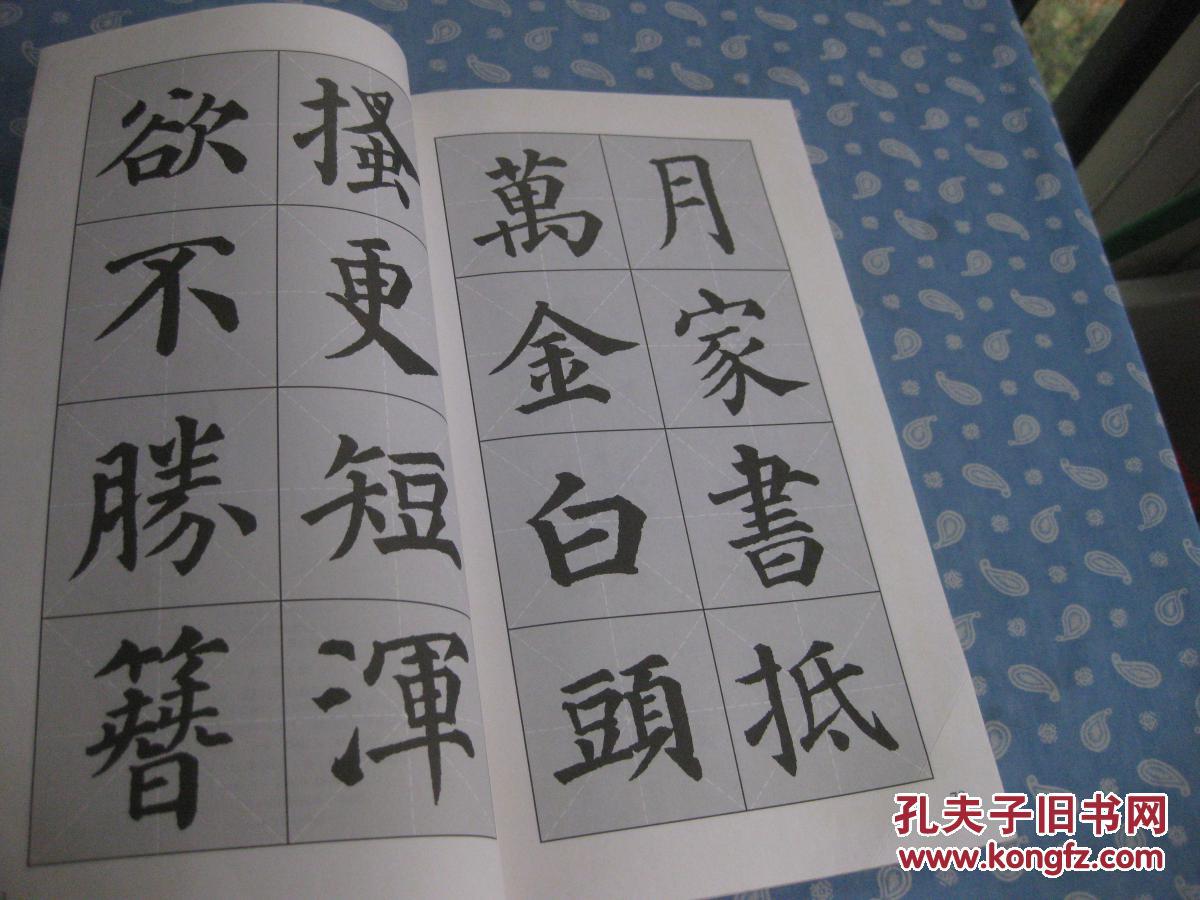 月家書抵
萬金白頭
搔更短渾
欲不勝簪
孔夫子旧书网
www.kongfz.com